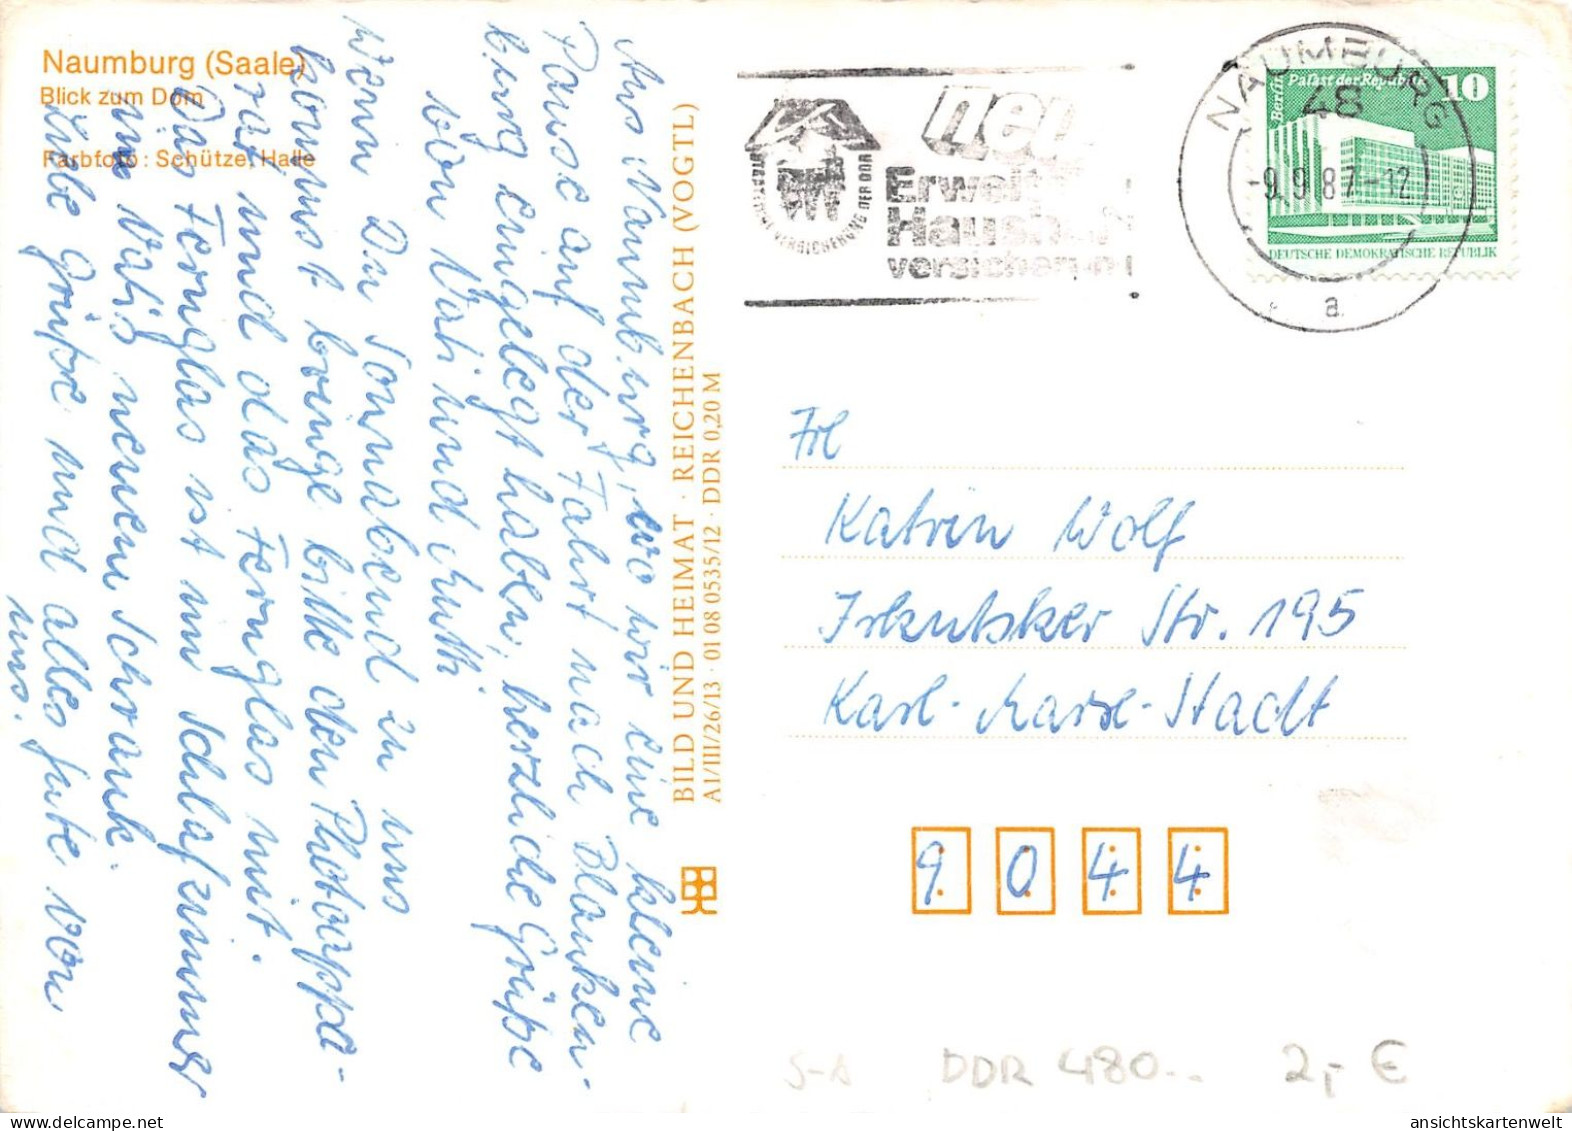 Naumburg (Saale)
Blick zum Dom
Farbfoto: Schützel Halle
Aus Naumburg, wo wir eine kleine
Pause auf der Fahrt nach Blanken-
burg eingelegt haben, herzliche Grüße
von Vati und Mutti
Wenn Du Sonnabend zu uns
kommst bringe bitte den Photoappa-
rat und das Fernglas mit.
Das Fernglas ist im Schlafzimmer
in Vatis neuem Schrank.
Liebe Grüße und alles Gute von
uns.
BILD UND HEIMAT · REICHENBACH (VOGTL)
A1/III/26/13 · 01 08 0535/12 · DDR 0,20 M
STAATLICHE VERSICHERUNG DER DDR
neu
Erweit
Haush
versicherun
NAUMBURG
48
-9.9.87-12
a
Berlin Palast der Republik
10
DEUTSCHE DEMOKRATISCHE REPUBLIK
Frl
Katrin Wolf
Irkutsker Str. 195
Karl-Marx-Stadt
9 0 4 4
S-A DDR 480.. 2,- €
ansichtskartenwelt